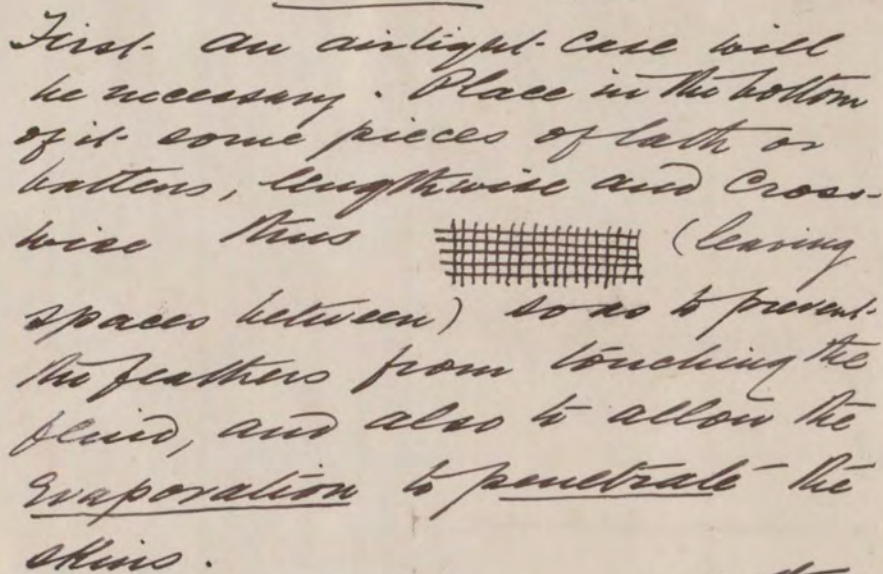 First an airtight case will
be necessary. Place in the bottom
of it some pieces of lath or
battens, lengthwise and cross-
wise thus (leaving
spaces between) so as to prevent
the feathers from touching the
fluid, and also to allow the
Evaporation to penetrate the
skins.